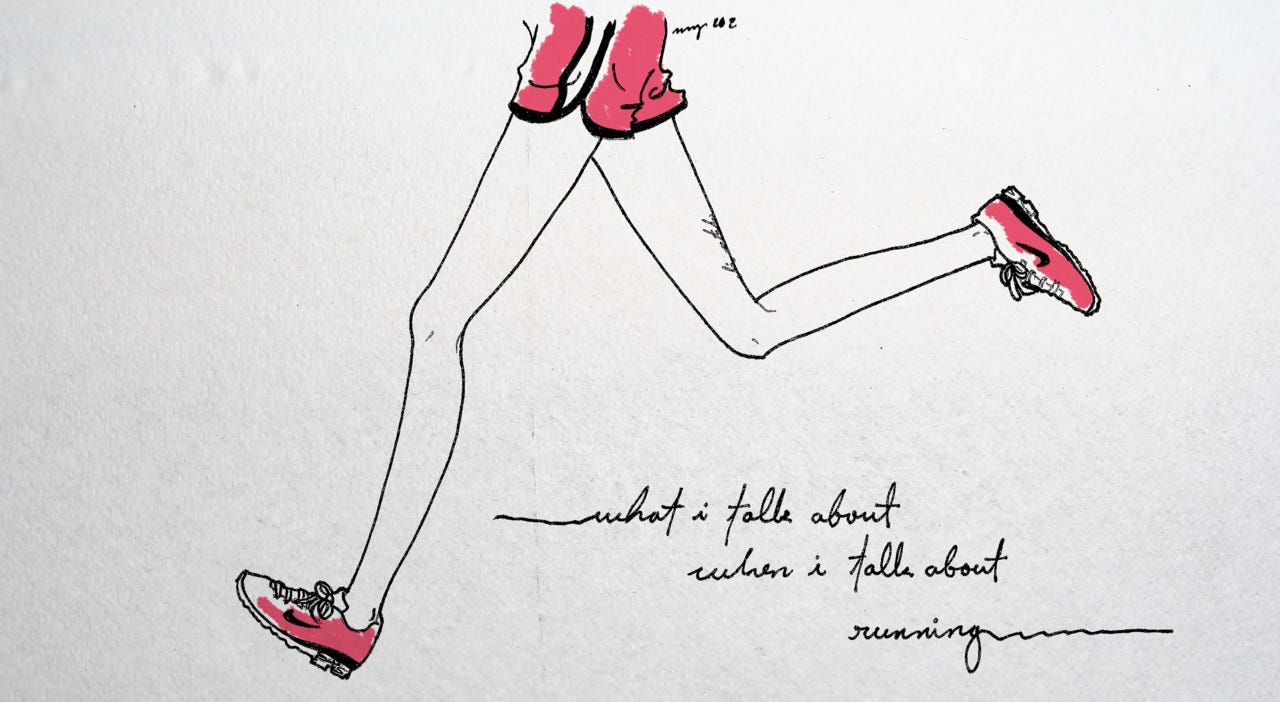 what i talk about
when i talk about
running